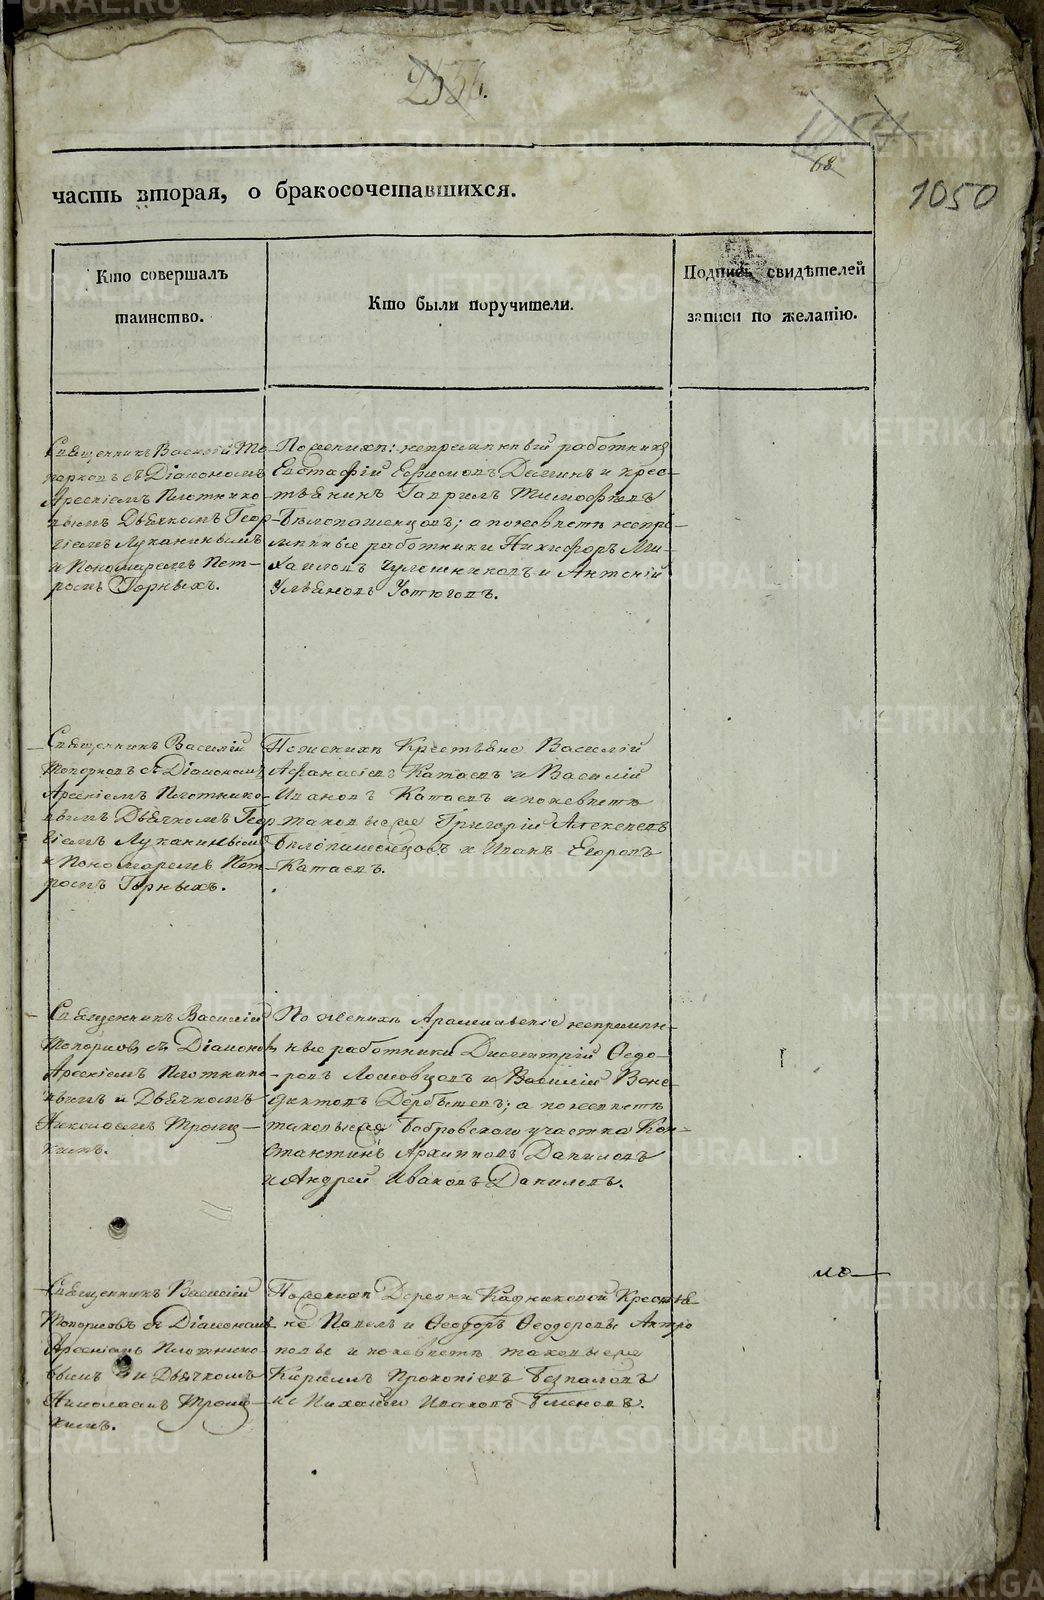 68
1050
часть вторая, о бракосочетавшихся.
Кто совершалъ
таинство.
Кто были поручители.
Подпись свидѣтелей
записи по желанію.
Священникъ Василій То-
порковъ съ Діакономъ
Арсеніемъ Плотнико-
вымъ Дьячкомъ Геор-
гіемъ Луканинымъ
и Пономаремъ Пет-
ромъ Горныхъ.
По женихѣ: непремѣнный работникъ
Евстафій Ефимовъ и крес-
тьянинъ Гаврилъ Тимофѣевъ
Бѣлопашенцовъ; а по невѣстѣ непре-
мѣнные работники Никифоръ Ми-
хайловъ и Антоній
Ульяновъ Устюговъ.
Священникъ Василій
Топорковъ съ Діакономъ
Арсеніемъ Плотнико-
вымъ Дьячкомъ Геор
гіемъ Луканинымъ
и Пономаремъ Пет-
ромъ Горныхъ.
По женихѣ Крестьяне Василій
Афанасіевъ Катаевъ и Василій
Ивановъ Катаевъ и по невѣстѣ
таковые же Григорій Алексѣевъ
Бѣлопашенцовъ и Иванъ Егоровъ
Катаевъ.
Священникъ Василій
Топорковъ съ Діаконом
Арсеніемъ Плотнико-
вымъ и Дьячкомъ
Николаемъ
По женихѣ Арамильскіе непремѣн-
ные работники Димитрій Ѳедо-
ровъ и Василій Вене-
диктовъ Дербышевъ; а по невѣстѣ
таковые же Бобровскаго участка Кон-
стантинъ Архиповъ Даниловъ
и Андрей Ивановъ Даниловъ.
Священникъ Василій
Топорковъ съ Діакономъ
Арсеніемъ Плотнико-
вымъ и Дьячкомъ
Николаемъ
По женихѣ Деревни Кадниковой Крестья
не Павелъ и Ѳеодоръ Ѳеодоровы Антро
повы и по невѣстѣ таковые же
Кирилъ Прокопіевъ Безпаловъ
Ивановъ
METRIKI.GASO-URAL.RU